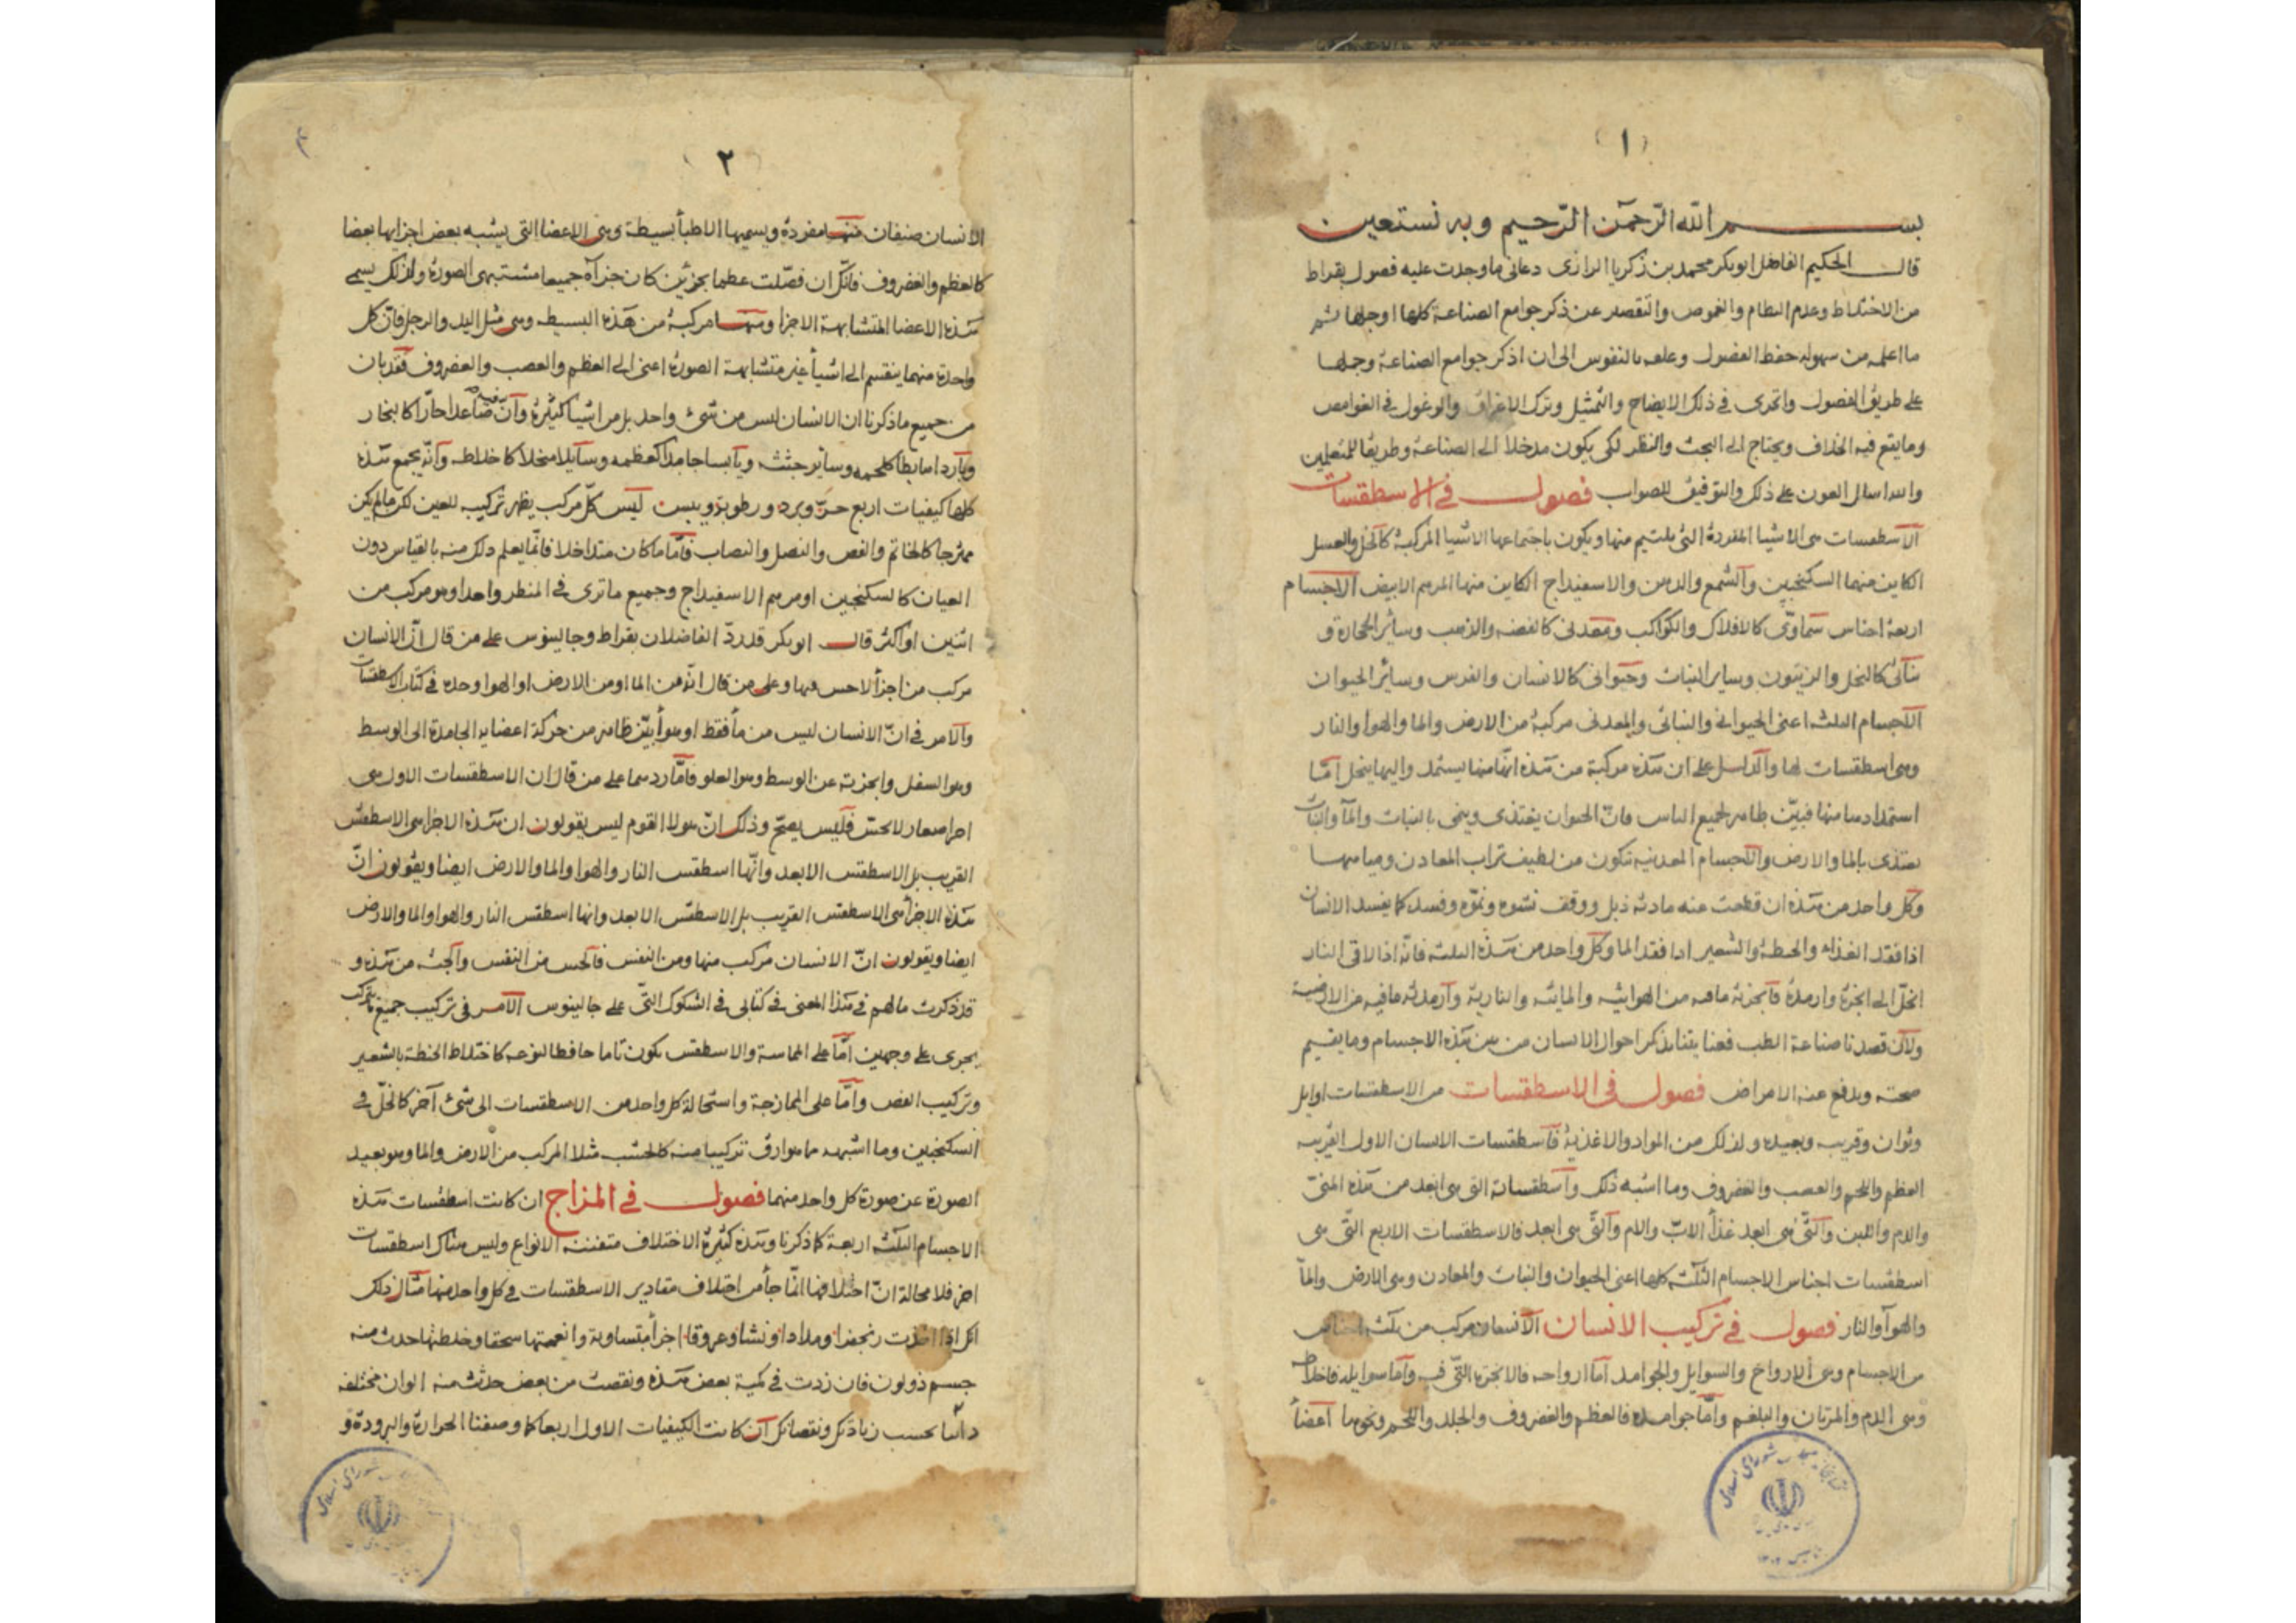 (١)
بسم الله الرّحمٰن الرّحيم وبه نستعين
قال الحكيم الفاضل ابوبكر محمد بن زكريا الرازى دعانى ما وجدت عليه فصول بقراط
من الاختلاط وعدم النظام والغموض والتقصير عن ذكر جوامع الصناعة كلها او جلها
ما اعلمه من سهولة حفظ الفصول وعلقه بالنفوس الى ان اذكر جوامع الصناعة وجملها
على طريق الفصول واتحرى فى ذلك الايضاح والتمثيل وترك الاغراق والوغول فى الغوامض
وما يقع فيه الخلاف ويحتاج الى البحث والنظر لكى يكون مدخلا الى الصناعة وطريقا للمتعلمين
والله اسال العون على ذلك والتوفيق للصواب فصول فى الاسطقسات
الاسطقسات هى الاشيا المفردة التى يلتئم منها ويكون باجتماعها الاشيا المركبة كالخل والعسل
الكاين منهما السكنجبين والشمع والدهن والاسفيداج الكاين منها المرهم الابيض الاجسام
اربعة اجناس سماوىّ كالافلاك والكواكب ومعدنى كالفضه والذهب وسائر الحجارة و
نباتى كالنخل والزيتون وساير النبات وحيوانى كالانسان والفرس وسائر الحيوان
الاجسام الثلثه اعنى الحيوانى والنباتى والمعدنى مركبة من الارض والما والهوا والنار
وهى اسطقسات لها والدليل على ان هذه مركبة من هذه انها منها يستمد واليها ينحل امّا
استمدادها منها فبيّن ظاهر لجميع الناس فانّ الحيوان يغتذى وينمى بالنبات والمآ والنبات
يغتذى بالما والارض والاجسام المعدنية تتكون من لطيف تراب المعادن ومياهها
وكل واحد من هذه ان قطعت عنه مادته ذبل ووقف نشوه ونموّه وفسد كما يفسد الانسان
اذا فقد الغذاء والحنطة والشعير اذا فقد الما وكل واحد من هذه الثلثه فانّه اذا لاقى النار
انحلّ الى ابخرة وارمدة فابخرته ما فيه من الهوائية والمائيه والنارية وارمدته ما فيه من الارضية
ولان قصدنا صناعة الطب فعنايتنا بذكر احوال الانسان من بين هذه الاجسام وما يقيم
صحته ويدفع عنه الامراض فصول فى الاسطقسات من الاسطقسات اوايل
وثوان وقريب وبعيده ولذلك من المواد والاغذية فاسطقسات الانسان الاول القريبه
العظم واللحم والعصب والغضروف وما اشبه ذلك واسطقساته التى هى ابعد من هذه المنىّ
والدم واللبن والتّى هى ابعد غذأ الابّ والام والتّى هى ابعد فالاسطقسات الاربع التّى هى
اسطقسات اجناس الاجسام الثلثة كلها اعنى الحيوان والنبات والمعادن وهى الارض والمآ
والهوآ والنار فصول فى تركيب الانسان الانسان مركب من ثلث
من الاجسام وهى الارواح والسوايل والجوامد امّا ارواحه فالابخرة التّى فيه وامّا سوايله فاخلاطه
وهى الدم والمرّتان والبلغم وامّا جوامده فالعظم والغضروف والجلد واللحم ونحوها اعضأ
(٢)
الانسان صنفان منها مفردة ويسميها الاطبأ بسيطة وهى الاعضا التى يشبه بعض اجزايها بعضا
كالعظم والغضروف فانّك ان فصّلت عظما بجزئين كان جزآه جميعا مشتبهى الصورة ولذلك يسمى
هذه الاعضا المتشابهة الاجزا ومنها مركبة من هذه البسيطه وهى مثل اليد والرجل فانّ كل
واحدة منهما ينقسم الى اشيأ غير متشابهة الصورة اعنى الى العظم والعصب والغضروف فقد بان
من جميع ما ذكرنا ان الانسان ليس من شئ واحد بل من اشيا كثيرة وانّ فيه صاعدا حارّا كالبخار
وباردا مابطا كلحمه وسائر جثته ويابسا جامدا كعظمه وسائلا منحلا كاخلاطه وانّه يجمع هذه
كلها كيفيات اربع حرّ وبرد ورطوبة ويبس ليس كلّ مركب يظهر تركيبه للعين لكن ما لم يكن
ممتزجا كالخاتم والفص والنصل والنصاب فامّا ما كان متداخلا فانّما يعلم ذلك منه بالقياس دون
العيان كالسكنجبين او مرهم الاسفيداج وجميع ما ترى فى المنظر واحدا وهو مركب من
اثنين او اكثر قال ابوبكر قد ردّ الفاضلان بقراط وجالينوس على من قال انّ الانسان
مركب من اجزأ لا حس فيها وعلى من قال انّه من الما او من الارض او الهوا وحده فى كتاب الاسطقسات
والامر فى انّ الانسان ليس من مأ فقط او هوأ بيّن ظاهر من حركة اعضايه الجامدة الى الوسط
وهو السفل وابخرته عن الوسط وهو العلو فامّا ردهما على من قال ان الاسطقسات الاول هى
اجزا صغار لا تحسّ فليس يصحّ وذلك انّ هولا القوم ليس يقولون ان هذه الاجزا هى الاسطقس
القريب بل الاسطقس الابعد وانّها اسطقس النار والهوا والما والارض ايضا ويقولون انّ
هذه الاجزأ هى الاسطقس القريب بل الاسطقس الابعد وانها اسطقس النار والهوا والما والارض
ايضا ويقولون انّ الانسان مركب منها ومن النفس فالحس من النفس والجثه من هذه و
قد ذكرت ما لهم فى هذا المعنى فى كتابى فى الشكوك التّى على جالينوس الامر فى تركيب جميع ما يتركب
يجرى على وجهين امّا على المماسة والاسطقس يكون تاما حافظا لنوعه كاختلاط الحنطة بالشعير
وتركيب الفص وامّا على الممازجة واستحالة كل واحد من الاسطقسات الى شئ آخر كالخلّ فى
السكنجبين وما اشبهه مما هو ارق تركيبا منه كالخشب مثلا المركب من الارض والما وهو بعيد
الصورة عن صورة كل واحد منهما فصول فى المزاج ان كانت اسطقسات هذه
الاجسام الثلثه اربعة كما ذكرنا وهذه كثيرة الاختلاف متفننة الانواع وليس هناك اسطقسات
اخر فلا محالة انّ اختلافها انّما جأ من اختلاف مقادير الاسطقسات فى كل واحد منها مثال ذلك
انّك اذا اخذت زنجفرا ومدادا ونشا وعروقا اجزأ متساوية وانعمتها سحقا وخلطتها حدث منه
جسم ذو لون فان زدت فى كمية بعض هذه ونقصت من بعض حدثت منه الوان مختلفة
دائما بحسب زيادتك ونقصانك ان كانت الكيفيات الاول اربعا كما وصفنا الحرارة والبرودة و